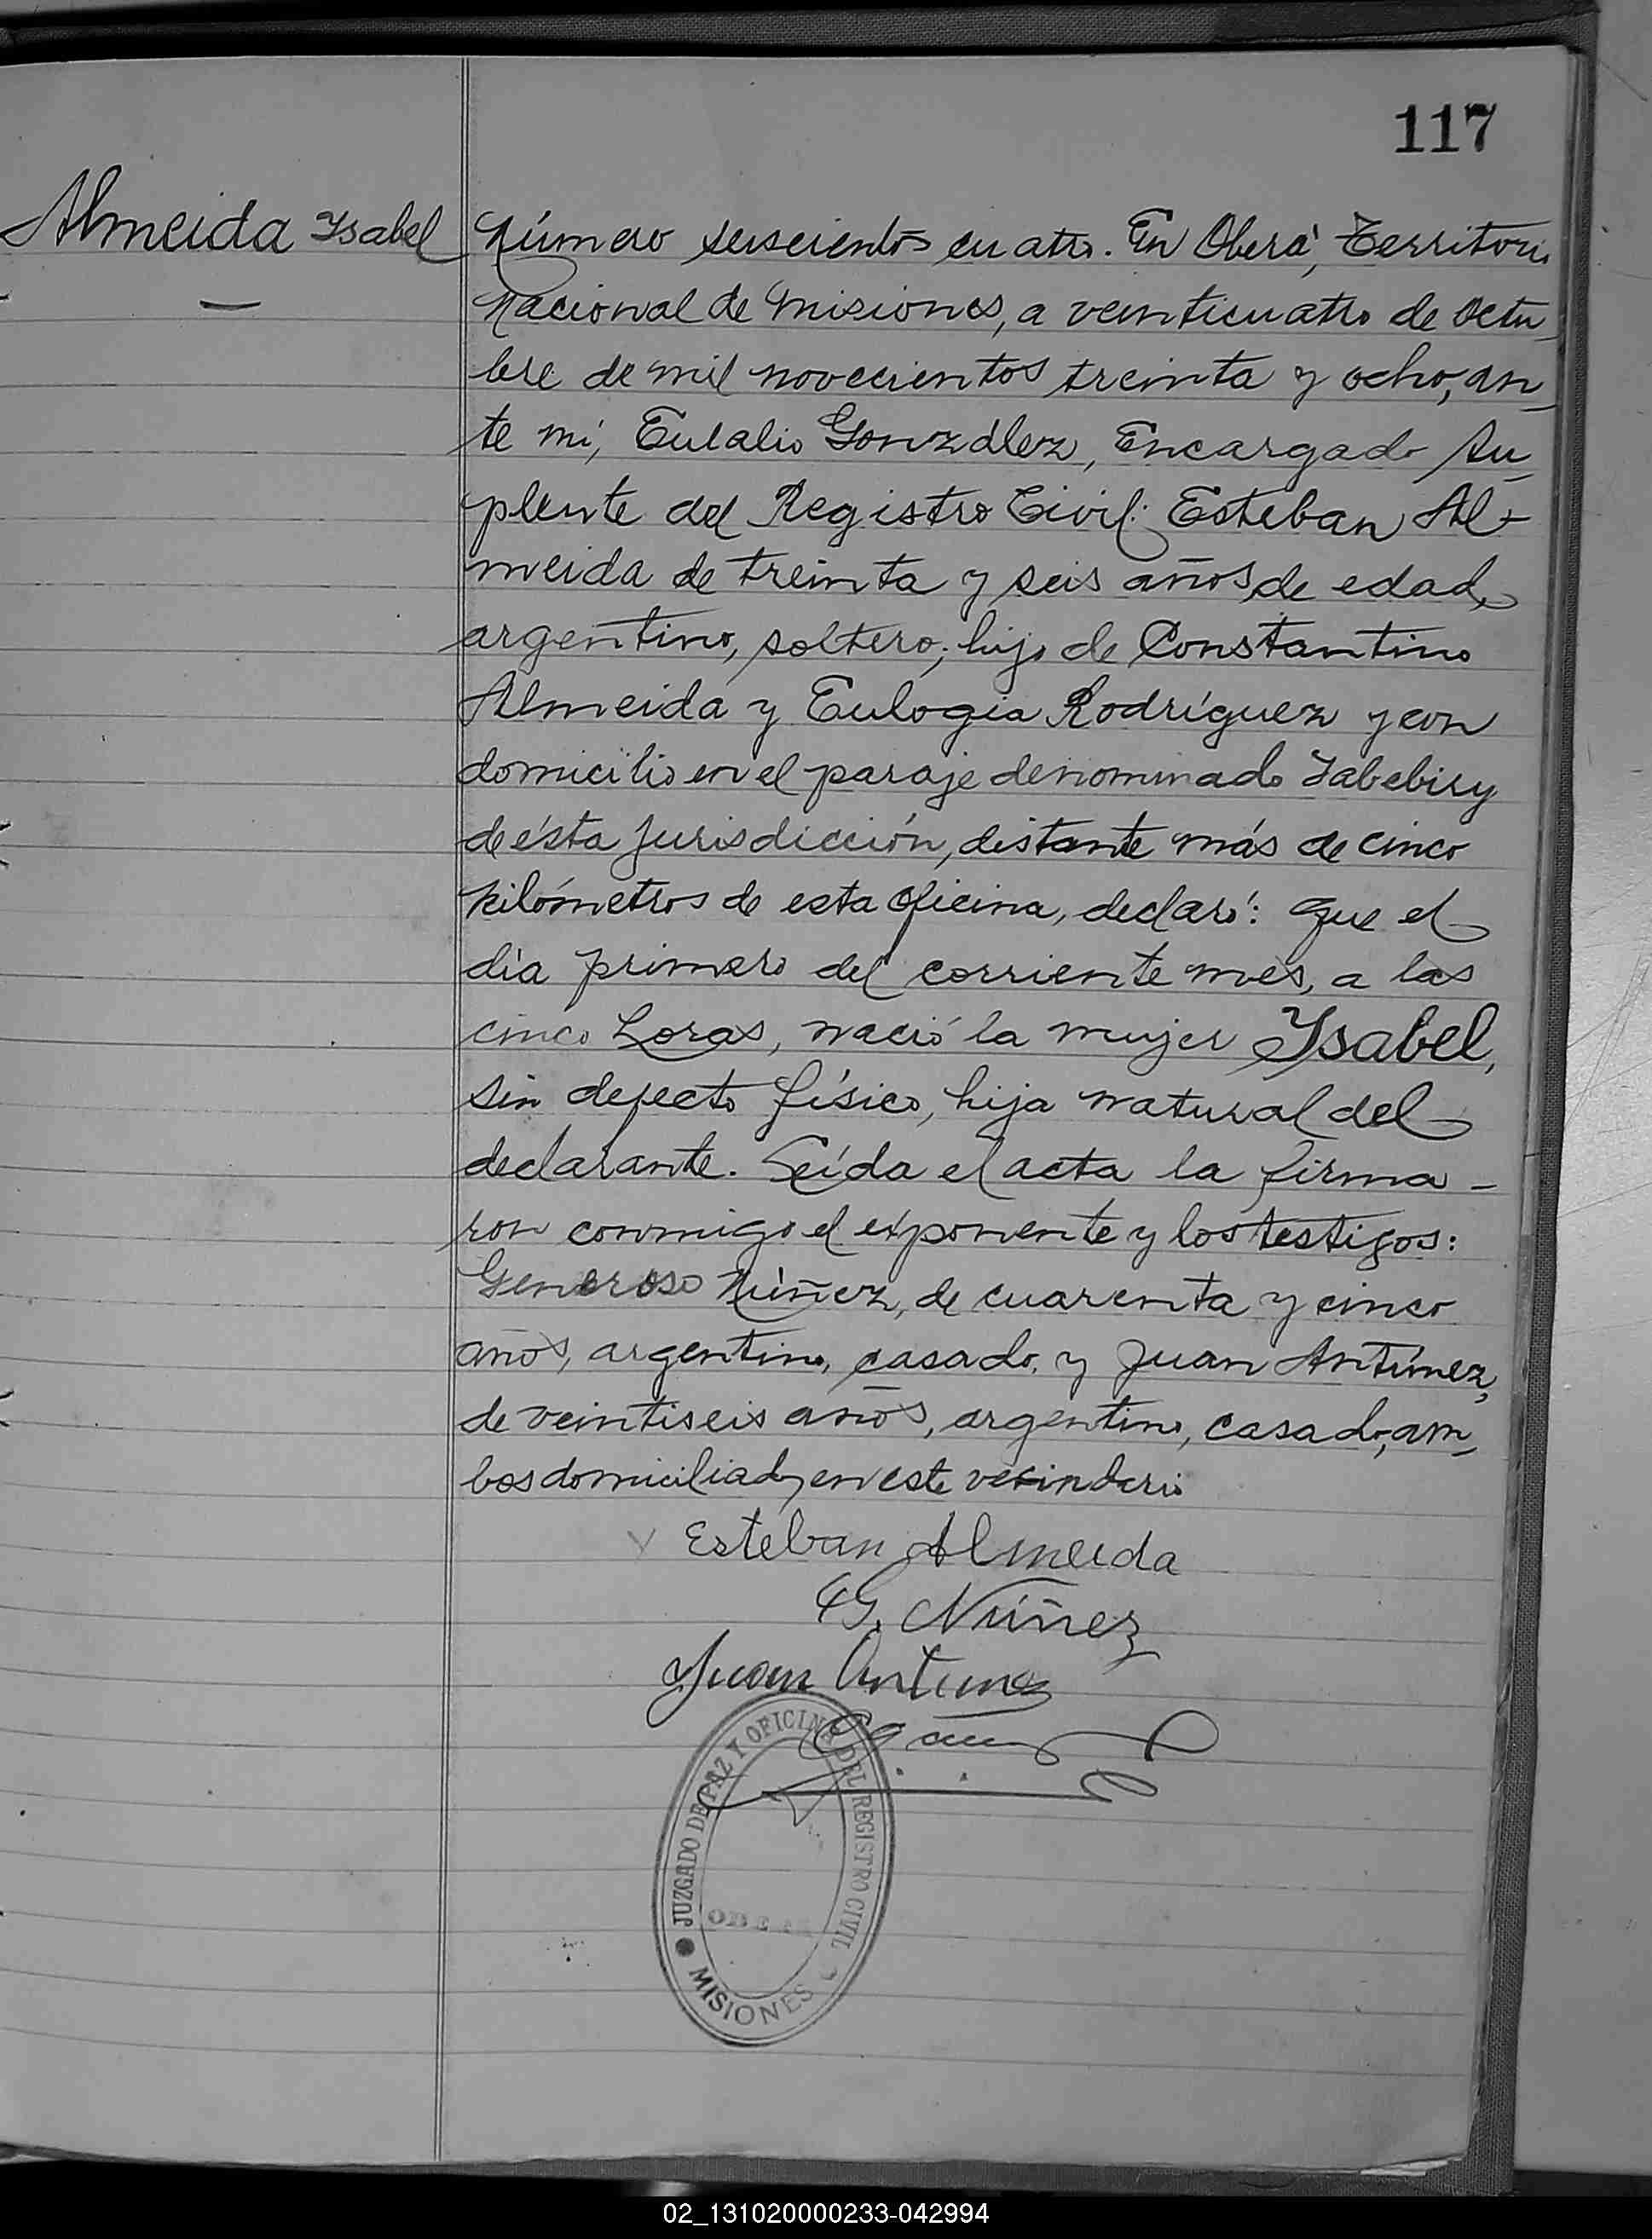 117
Almeida Ysabel
Número seiscientos cuatro. En Oberá, Territorio
Nacional de Misiones, a veinticuatro de Octu_
bre de mil novecientos treinta y ocho, an_
te mí, Eulalio González, Encargado Su_
plente del Registro Civil: Esteban Al-
meida de treinta y seis años de edad,
argentino, soltero; hijo de Constantino
Almeida y Eulogia Rodríguez y con
domicilio en el paraje denominado Yabebiry
de ésta jurisdicción, distante más de cinco
kilómetros de esta Oficina, declaró: Que el
día primero del corriente mes, a las
cinco horas, nació la mujer Ysabel,
sin defecto físico, hija natural del
declarante. Leída el acta la firma-
ron conmigo el exponente y los testigos:
Generoso Núñez, de cuarenta y cinco
años, argentino, casado, y Juan Antúnez,
de veintiseis años, argentino, casado, am_
bos domiciliados en este vecindario
Esteban Almeida
G. Núñez
Juan Antunez
JUZGADO DE PAZ Y OFICINA DEL REGISTRO CIVIL
OBERA
MISIONES
02_131020000233-042994